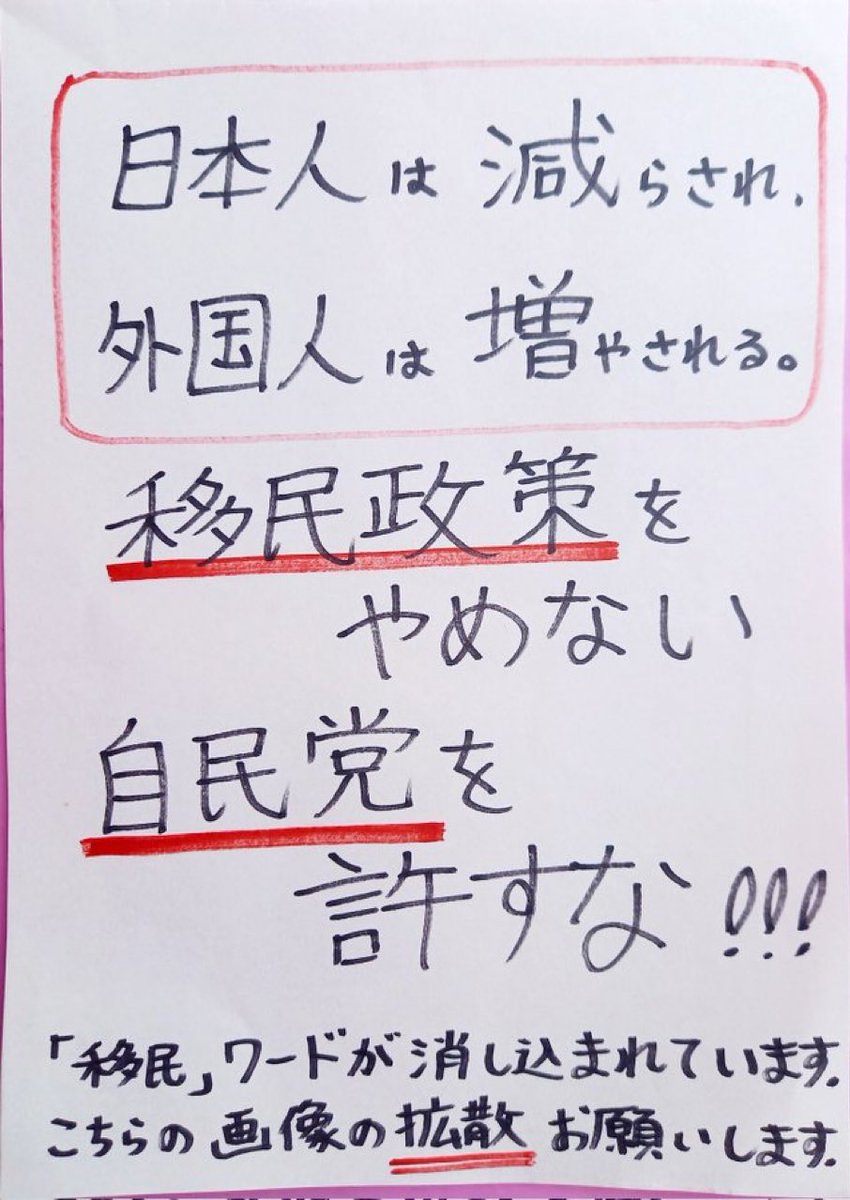 日本人は減らされ、
外国人は増やされる。
移民政策を
やめない
自民党を
許すな!!!
「移民」ワードが消し込まれています。
こちらの画像の拡散お願いします。